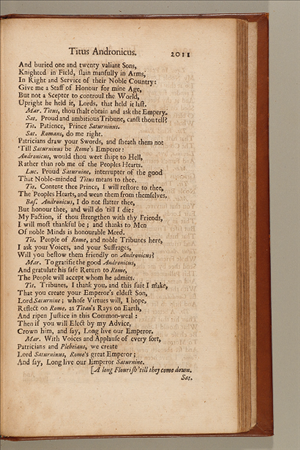 Titus Andronicus. 2011
And buried one and twenty valiant Sons,
Knighted in Field, slain manfully in Arms,
In Right and Service of their Noble Country:
Give me a Staff of Honour for mine Age,
But not a Scepter to controul the World,
Upright he held it, Lords, that held it last.
Mar. Titus, thou shalt obtain and ask the Empery.
Sat. Proud and ambitious Tribune, canst thou tell?
Tit. Patience, Prince Saturninus.
Sat. Romans, do me right.
Patricians draw your Swords, and sheath them not
'Till Saturninus be Rome's Emperor:
Andronicus, would thou wert shipt to Hell,
Rather than rob me of the Peoples Hearts.
Luc. Proud Saturnine, interrupter of the good
That Noble-minded Titus means to thee.
Tit. Content thee Prince, I will restore to thee,
The Peoples Hearts, and wean them from themselves.
Bass. Andronicus, I do not flatter thee,
But honour thee, and will do 'till I die:
My Faction, if thou strengthen with thy Friends,
I will most thankful be; and thanks to Men
Of noble Minds is honourable Meed.
Tit. People of Rome, and noble Tribunes here,
I ask your Voices, and your Suffrages,
Will you bestow them friendly on Andronicus?
Mar. To gratifie the good Andronicus,
And gratulate his safe Return to Rome,
The People will accept whom he admits.
Tit. Tribunes, I thank you, and this suit I make,
That you create your Emperor's eldest Son,
Lord Saturnine; whose Virtues will, I hope,
Reflect on Rome, as Titan's Rays on Earth,
And ripen Justice in this Common-weal:
Then if you will Elect by my Advice,
Crown him, and say, Long live our Emperor.
Mar. With Voices and Applause of every sort,
Patricians and Plebeians, we create
Lord Saturninus, Rome's great Emperor;
And say, Long live our Emperor Saturnine.
[A long Flourish 'till they come down.
Sat.